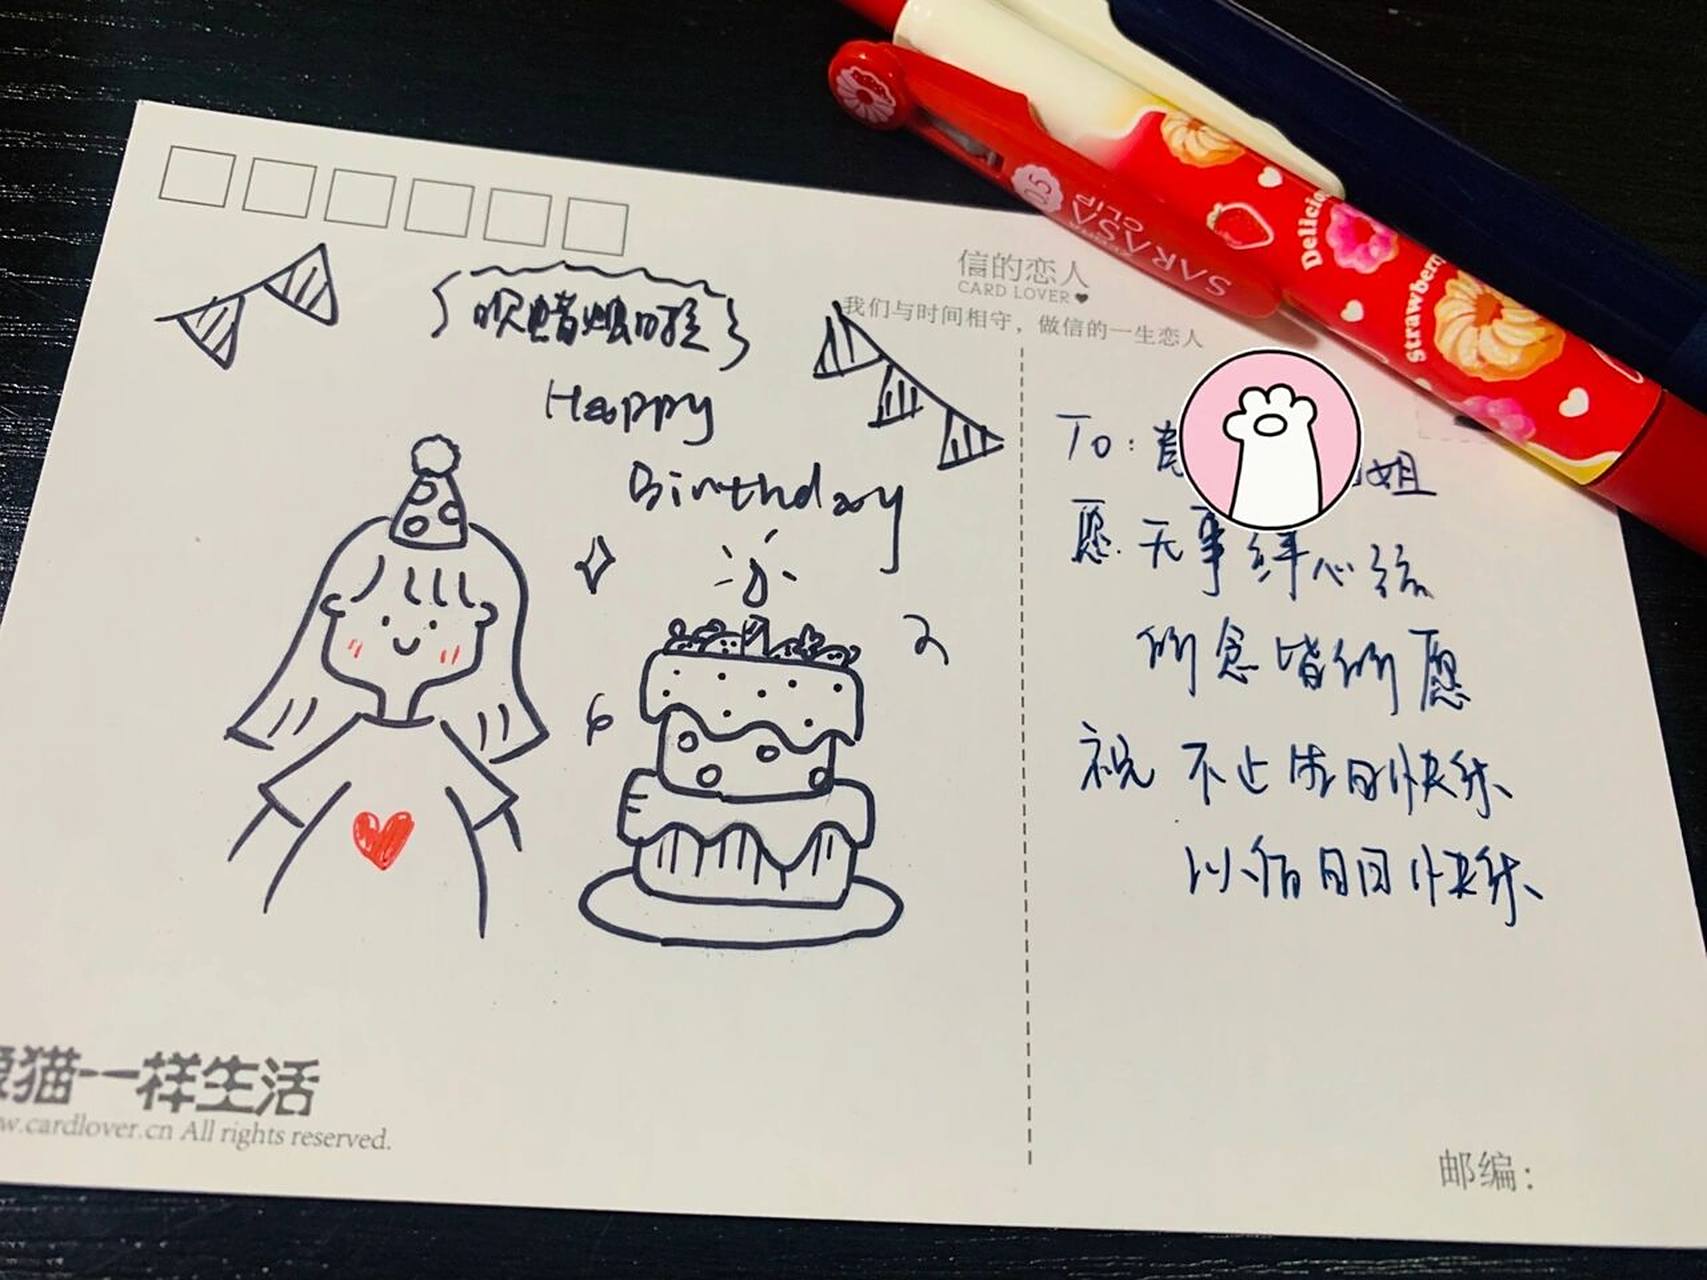 信的恋人
CARD LOVER
我们与时间相守，做信的一生恋人
吹蜡烛啦
Happy
Birthday
To：
姐
愿 无事绊心弦
所念皆所愿
祝 不止生日快乐
以后日日快乐
猫一样生活
w.cardlover.cn All rights reserved.
邮编：
SARASA
CLIP
05
Delicio
Strawberry